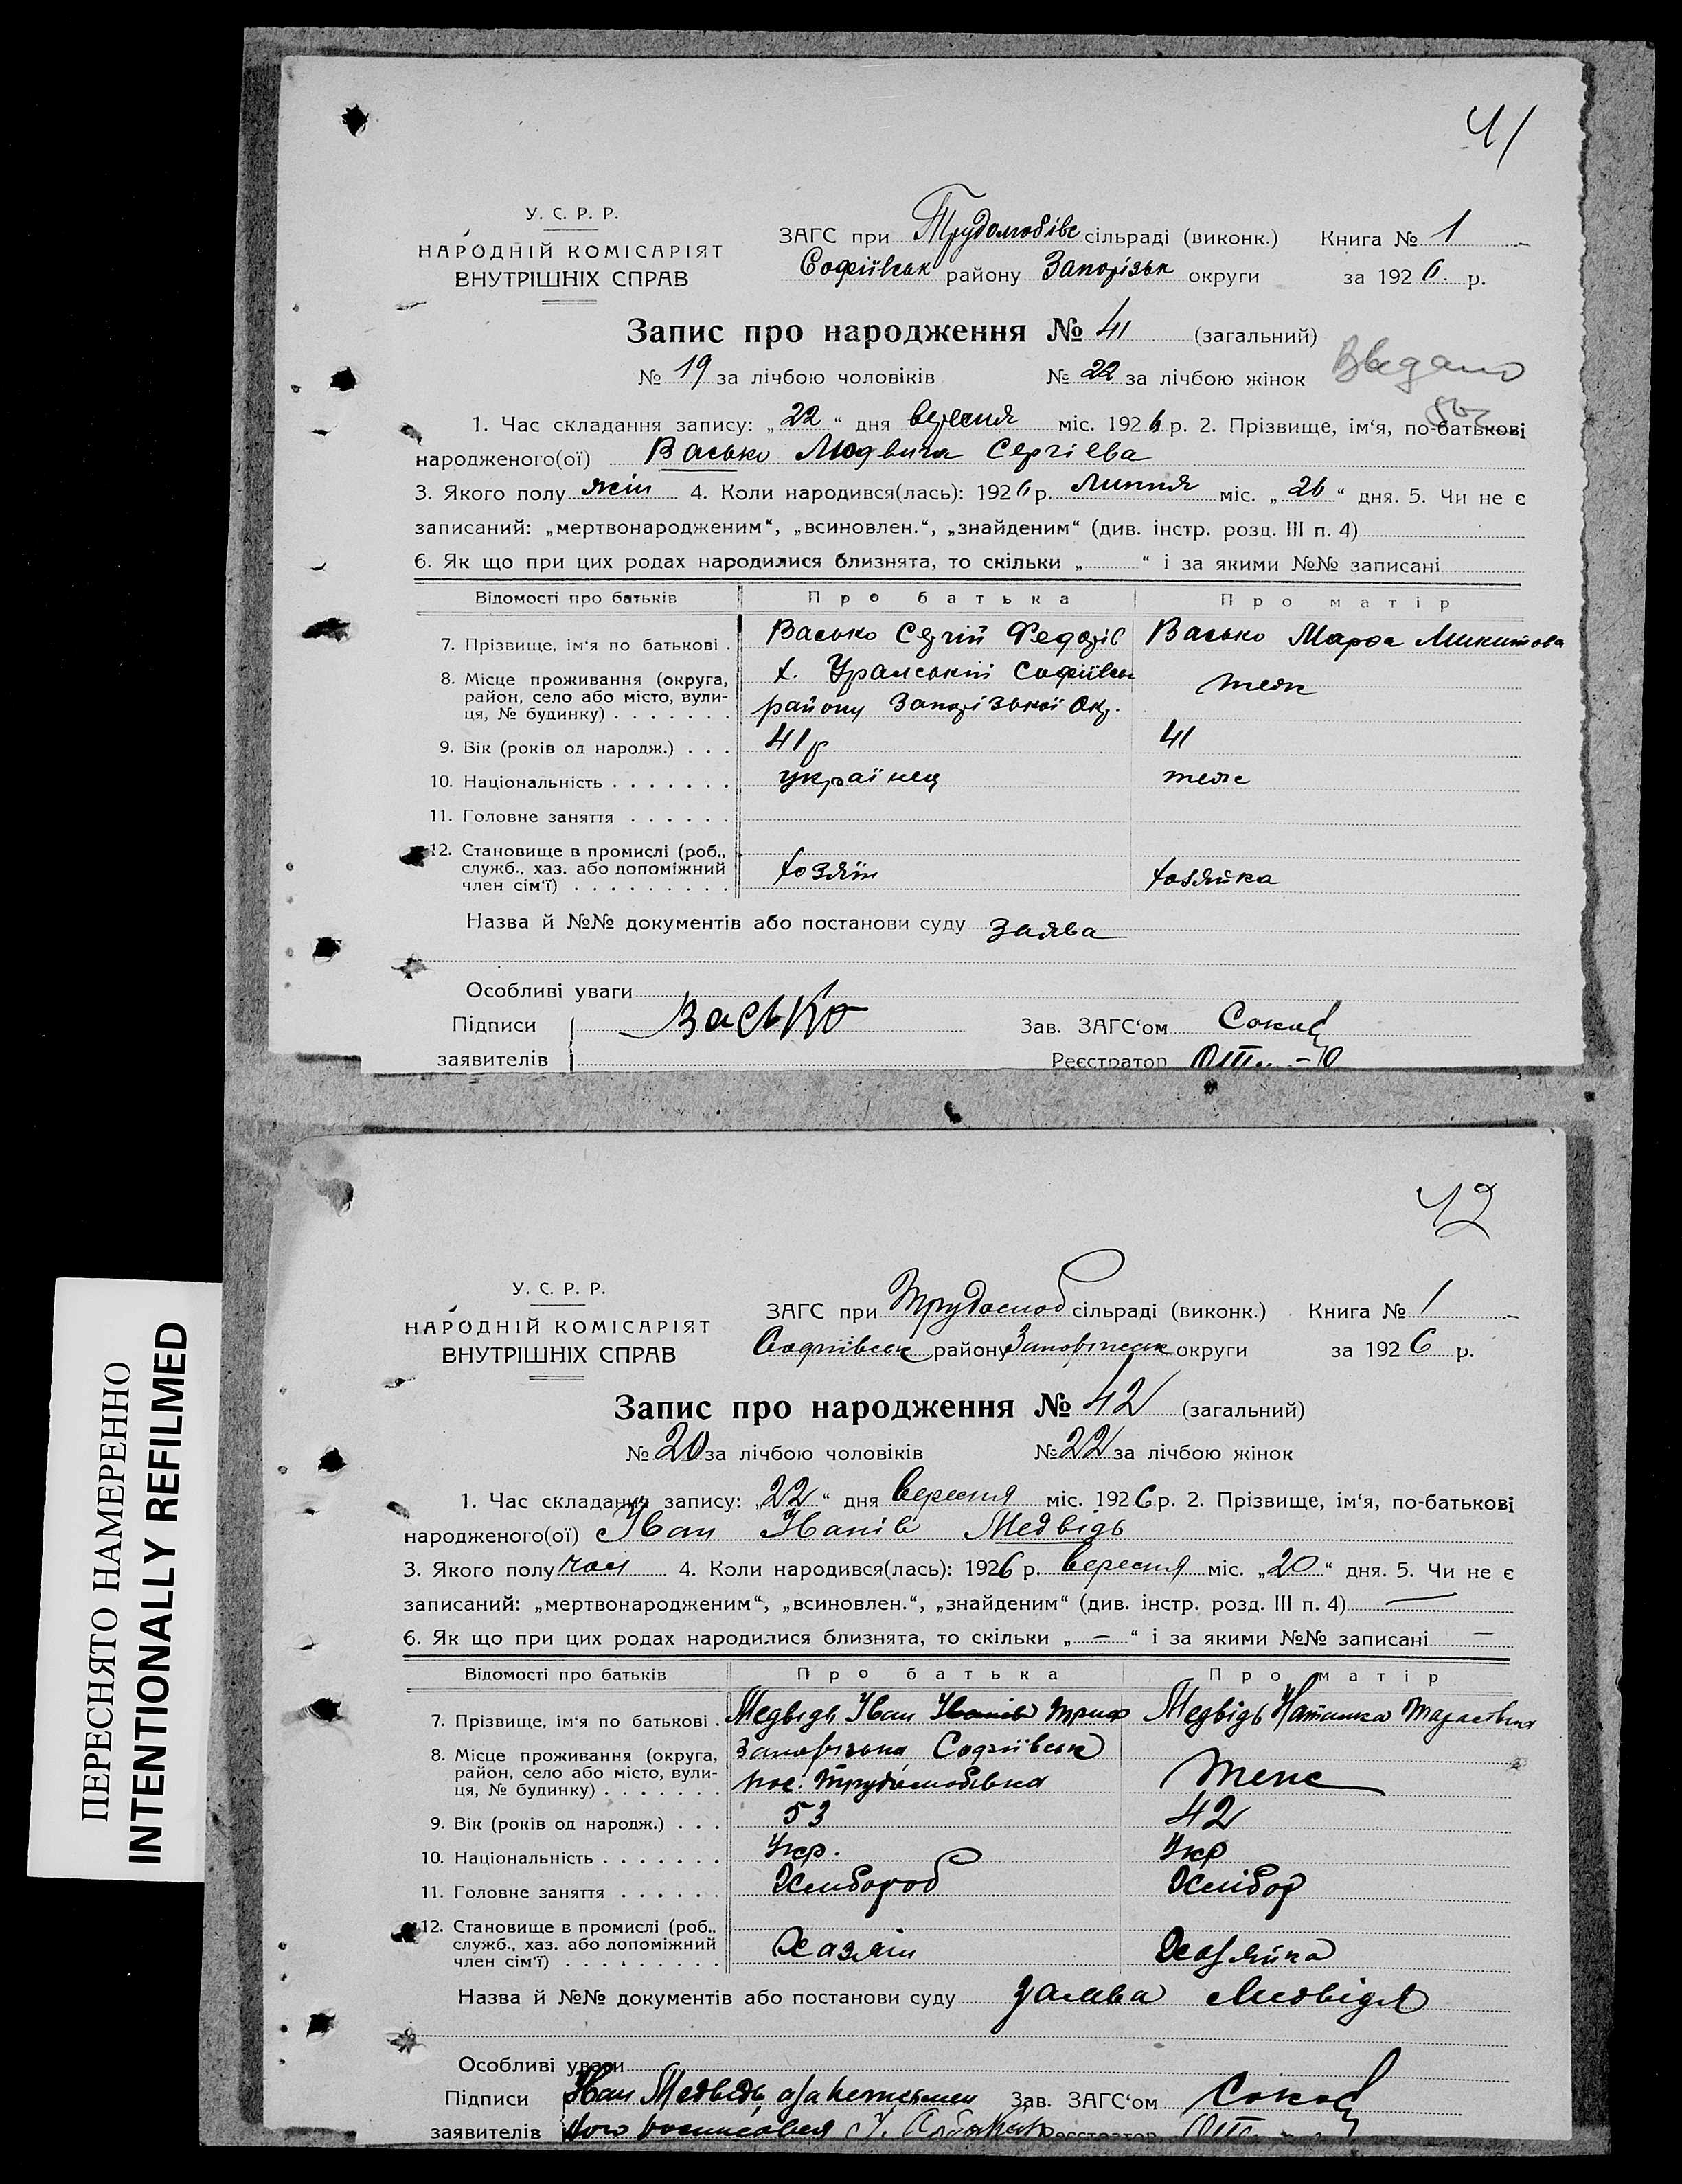 41
У. С. Р. Р.
НАРОДНІЙ КОМІСАРІЯТ
ВНУТРІШНІХ СПРАВ
ЗАГС при Трудолюбівс сільраді (виконк.) Книга № 1
Софіївськ району Запорізьк округи за 1926. р.
Запис про народження № 41 (загальний)
№ 19 за лічбою чоловіків № 22 за лічбою жінок
1. Час складання запису: „22“ дня вересня міс. 1926 р. 2. Прізвище, ім‘я, по-батькові
народженого(ої) Васько Людвига Сергієва
3. Якого полу жін 4. Коли народився(лась): 1926 р. липня міс. „26“ дня. 5. Чи не є
записаний: „мертвонародженим“, „всиновлен.“, „знайденим“ (див. інстр. розд. III п. 4)
6. Як що при цих родах народилися близнята, то скільки „ “ і за якими №№ записані
Відомості про батьків Про батька Про матір
7. Прізвище, ім‘я по батькові . Васько Сергій Федорів Васько Марфа Микитова
8. Місце проживання (округа, район, село або місто, вулиця, № будинку) . . . . . . . х. Уральський Софіївськ
району Запорізької Окр. теж
9. Вік (років од народж.) . . . 41р 41
10. Національність . . . . . . . українец теж
11. Головне заняття . . . . . .
12. Становище в промислі (роб., служб., хаз. або допоміжний член сім‘ї) . . . . . . . . . хозяїн хозяйка
Назва й №№ документів або постанови суду заява
Особливі уваги
Підписи Васько Зав. ЗАГС‘ом
заявителів Реєстратор
42
У. С. Р. Р.
НАРОДНІЙ КОМІСАРІЯТ
ВНУТРІШНІХ СПРАВ
ЗАГС при Трудолюб сільраді (виконк.) Книга № 1
Софіївськ району Запоріжськ округи за 1926 р.
Запис про народження № 42 (загальний)
№ 20 за лічбою чоловіків № 22 за лічбою жінок
1. Час складання запису: „22“ дня вересня міс. 1926 р. 2. Прізвище, ім‘я, по-батькові
народженого(ої) Іван Іванів Медвідь
3. Якого полу чол 4. Коли народився(лась): 1926 р. вересня міс. „20“ дня. 5. Чи не є
записаний: „мертвонародженим“, „всиновлен.“, „знайденим“ (див. інстр. розд. III п. 4) —
6. Як що при цих родах народилися близнята, то скільки „—“ і за якими №№ записані —
Відомості про батьків Про батька Про матір
7. Прізвище, ім‘я по батькові . Медвідь Іван Іванів Триф Медвідь Наталка
8. Місце проживання (округа, район, село або місто, вулиця, № будинку) . . . . . . . Запорізька Софіївськ
пос. Трудолюбівка теж
9. Вік (років од народж.) . . . 53 42
10. Національність . . . . . . . Укр. Укр
11. Головне заняття . . . . . . Хлібороб Хлібор
12. Становище в промислі (роб., служб., хаз. або допоміжний член сім‘ї) . . . . . . . . . Хазяїн Хазяйка
Назва й №№ документів або постанови суду заява Медвідя
Особливі уваги
Підписи Іван Медвідь, Зав. ЗАГС‘ом
заявителів росписався Реєстратор
ПЕРЕСНЯТО НАМЕРЕННО
INTENTIONALLY REFILMED